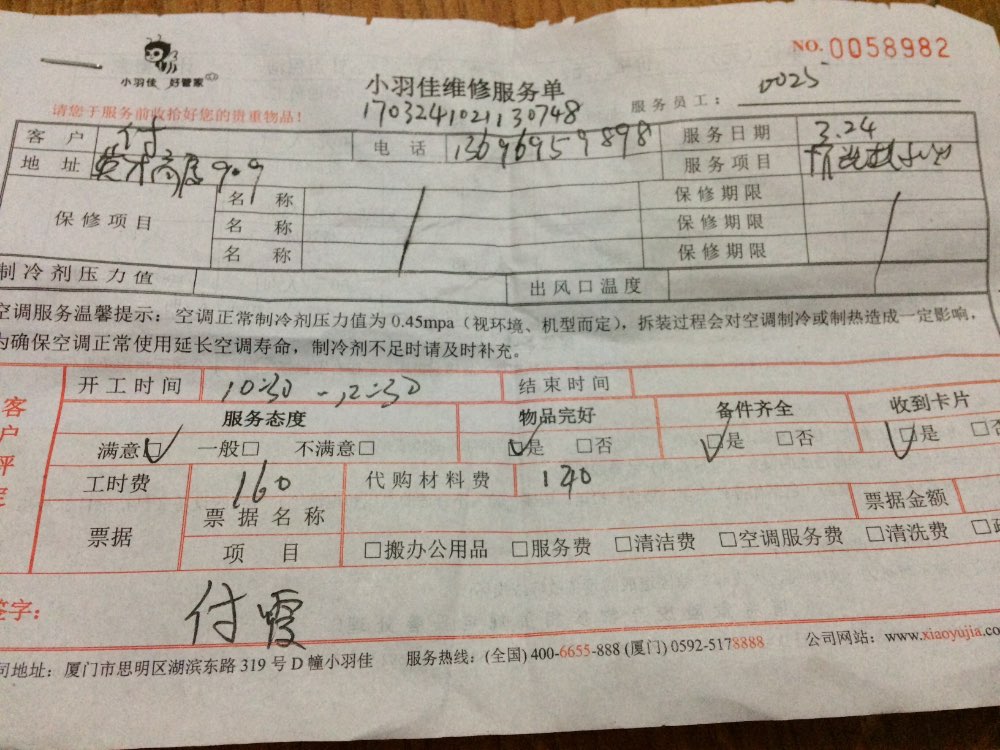 NO.0058982
小羽佳 好管家
小羽佳维修服务单
服务员工: 0025
请您于服务前收拾好您的贵重物品!
1703241021130748
客户 付 电话 13696959898 服务日期 3.24
地址 高层909 服务项目
保修项目 名称 保修期限
名称 保修期限
名称 保修期限
制冷剂压力值 出风口温度
空调服务温馨提示:空调正常制冷剂压力值为0.45mpa(视环境、机型而定),拆装过程会对空调制冷或制热造成一定影响,
为确保空调正常使用延长空调寿命,制冷剂不足时请及时补充。
客户评定
开工时间 10:30-12:30 结束时间
服务态度 物品完好 备件齐全 收到卡片
满意□ 一般□ 不满意□ □是 □否 □是 □否 □是 □否
工时费 160 代购材料费 140
票据 票据名称 票据金额
项目 □搬办公用品 □服务费 □清洁费 □空调服务费 □清洗费
签字: 付霞
司地址:厦门市思明区湖滨东路319号D幢小羽佳 服务热线:(全国)400-6655-888 (厦门)0592-5178888 公司网站:www.xiaoyujia.co